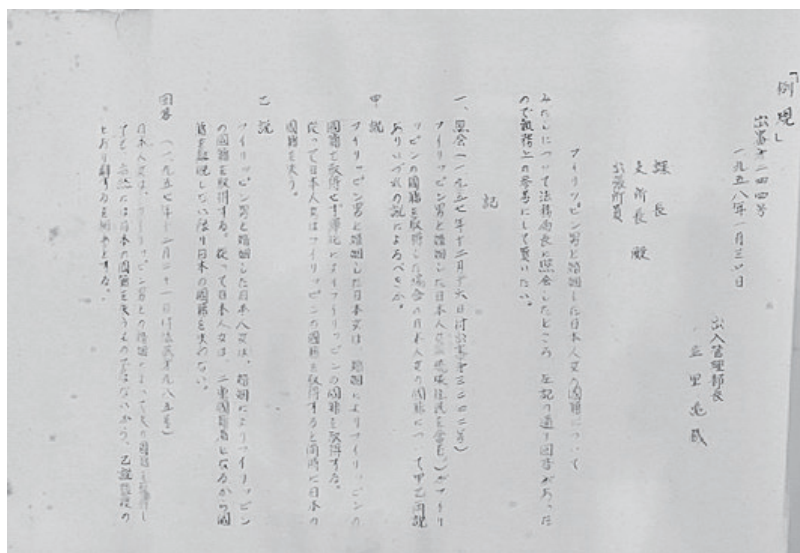 「例規」
出審第二四四号
一九五八年一月三〇日
出入管理部長
課長
支所長 殿
出張所員
フイリッピン男と婚姻した日本人女の国籍について
みだしについて法務局長に照会したところ 左記の通り回答があった
ので執務上の参考にして貰いたい。
記
一、照会(一九五七年十二月十六日付出審第三二〇二号)
フイリッピン男と婚姻した日本人女(琉球住民を含む。)がフイリ
ッピンの国籍を取得した場合の日本人女の国籍について甲乙両説
ありいづれの説によるべきか。
甲説
フイリッピン男と婚姻した日本人女は、婚姻によりフイリッピンの
国籍を取得せず帰化によりフイリッピンの国籍を取得する。
従って日本人女はフイリッピンの国籍を取得すると同時に日本の
国籍を失う。
乙説
フイリッピン男と婚姻した日本人女は、婚姻によりフイリッピン
の国籍を取得する。従って日本人女は、二重国籍者となるから国
籍を離脱しない限り日本の国籍を失わない。
回答 (一九五七年十二月二十一日付法民第九八五号)
日本人女は、フイリッピン男との婚姻によって夫の国籍を取得し
ても、当然には日本の国籍を失うものではないから、乙説
とおり解するを相当とする。